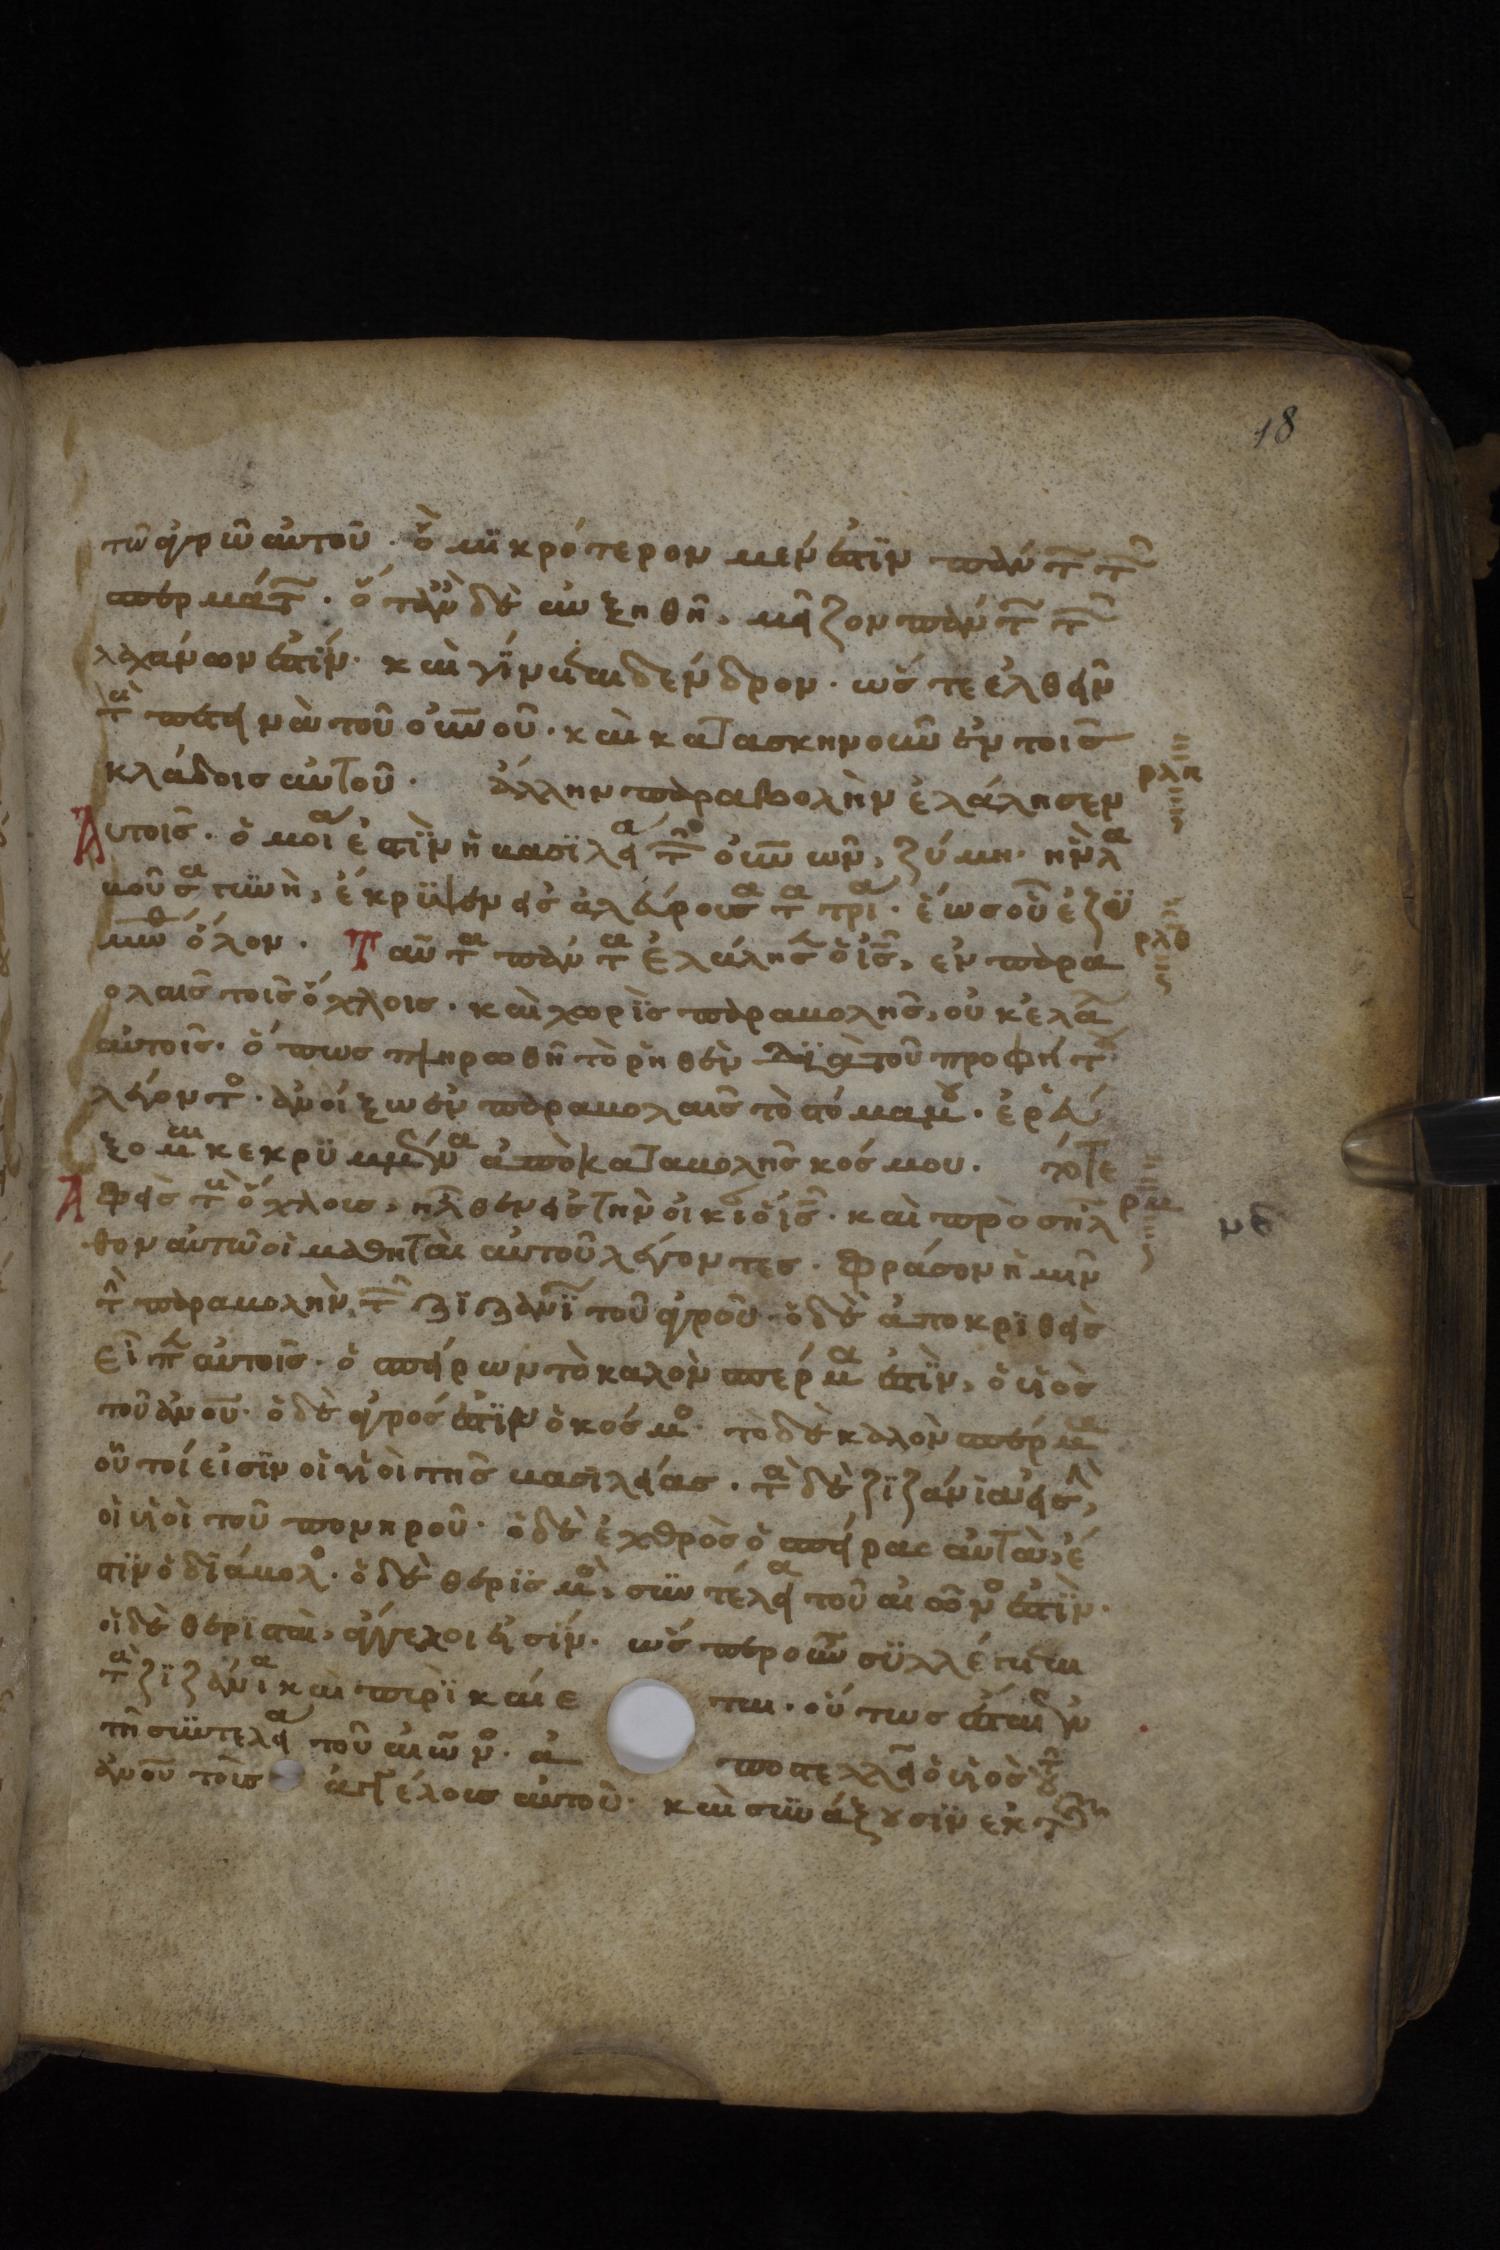 18
τῶ ἀγρῶ αὐτοῦ · ὃ μϊκρότερον μέν ἐστϊν πάντ τ
σπερμάτ · ὅταν δὲ αὐξηθῆ, μεῖζον πάντ τ
λαχάνων ἐστϊν · καὶ γΐνεται δένδρον · ὥστε ἐλθεῖν
τὰ πετεινὰ τοῦ οὐνοῦ · καὶ κατασκηνοῦν ἐν τοῖς
κλάδοις αὐτοῦ · ἄλλην παραβολὴν ἐλάλησεν
ρλη
Αὐτοῖς · ὁμοία ἐστϊν ἡ βασϊλεία τ οὐνῶν, ζύμη · ἣν λα
βοῦσα γυνὴ, ἔκρϋψεν εἰς ἀλεύρου σατα τρία · ἕως οὗ ἐζϋ
μώθ ὅλον · Ταῦτα πάντα ἐλάλησεν ὁ ις, ἐν παρα
ρλθ
βολαῖς τοῖς ὄχλοις · καὶ χωρὶς παραβολῆς, οὐκ ἐλά
αὐτοῖς · ὅπως πληρωθῆ τὸ ῥηθὲν δϊὰ τοῦ προφήτ
λέγοντο · ἀνοίξω ἐν παραβολαῖς τὸ στόμα μου · ἐρεύ
ξομαι κεκρϋμμένα ἀπὸ καταβολῆς κόσμου · τότε
ρμ
Αφεὶς τ ὄχλους, ἦλθεν εἰς τὴν οἰκι ὁ ις · καὶ προσῆλ
νδ
θον αὐτῶ οἱ μαθηταὶ αὐτοῦ λέγοντες · φράσον ἡμῖν
τ παραβολὴν τ ζϊζανϊ τοῦ ἀγροῦ · ὁ δὲ ἀποκρϊθεὶς
εἶπεν αὐτοῖς · ὁ σπείρων τὸ καλὸν σπέρμα ἐστϊν, ὁ υἱὸς
τοῦ ἀνου · ὁ δὲ ἀγρός ἐστϊν ὁ κόσμο · τὸ δὲ καλὸν σπέρμα
οὗτοί εἰσϊν οἱ υἱοὶ τῆς βασϊλείας · τὰ δὲ ζϊζάνια εἰσὶν,
οἱ υἱοὶ τοῦ πονηροῦ · ὁ δὲ ἐχθρὸς ὁ σπείρας αὐτὰ, ἐ
στϊν ὁ δϊάβολο · ὁ δὲ θερϊσμὸ, συντέλεια τοῦ αἰῶνο ἐστϊν ·
οἱ δὲ θερϊσταὶ, ἄγγελοι εἰσϊν · ὥσπερ οὖν συλλέγεται
τὰ ζϊζάνια καὶ πυρὶ καίε ται · οὕτως ἔσται ἐν
τῆ συντελεία τοῦ αἰῶνο · ἀ ποστελλεῖ ὁ υἱὸς τοῦ
ἀνου τοῖς ἀγγέλοις αὐτοῦ · καὶ συνάξουσϊν ἐκ τῆ